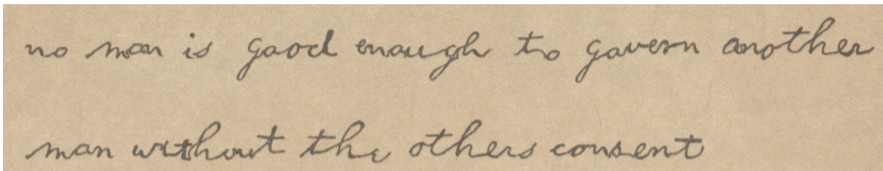 no man is good enough to govern another
man without the others consent